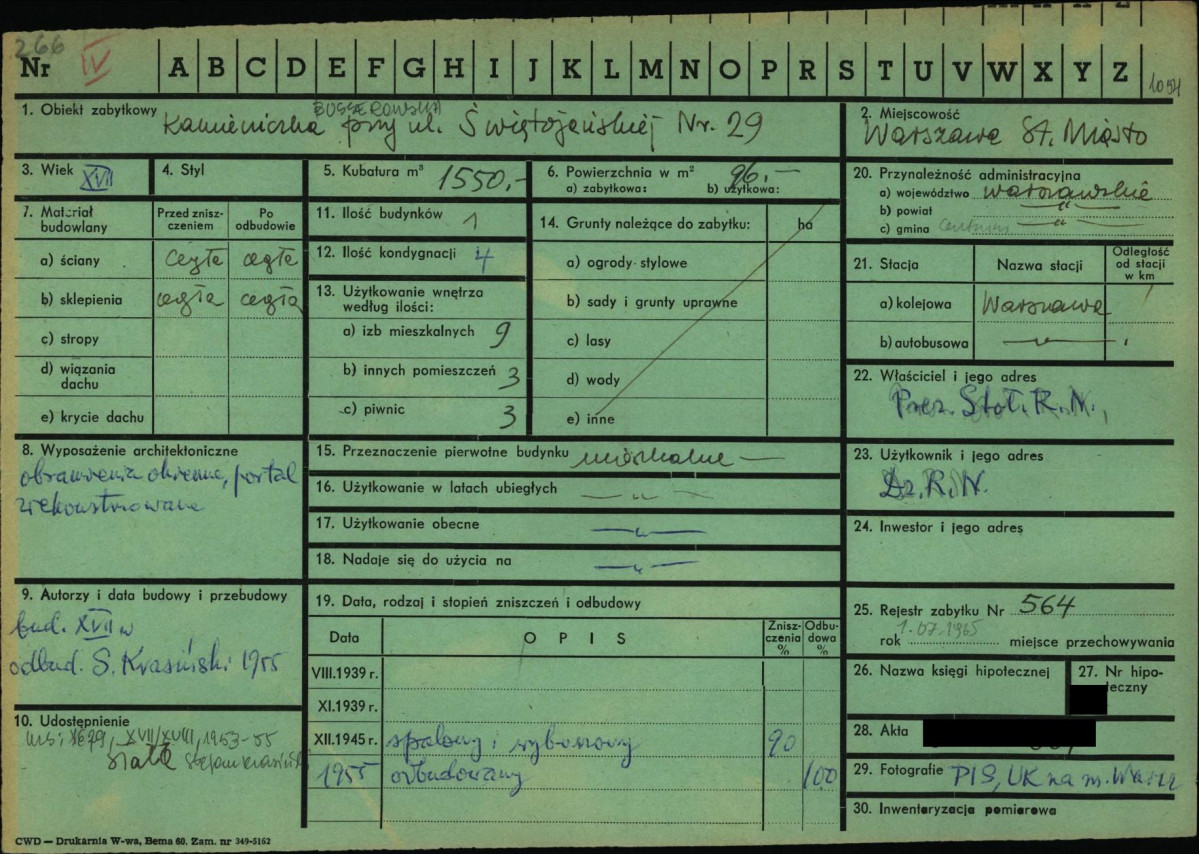 266
Nr IV A B C D E F G H I J K L M N O P R S T U V W X Y Z
1. Obiekt zabytkowy
Kamieniczka przy ul. Świętojańskiej Nr. 29
2. Miejscowość
Warszawa St. Miasto
3. Wiek XVII
4. Styl
5. Kubatura m³ 1550,-
6. Powierzchnia w m² 96.-
a) zabytkowa: b) użytkowa:
20. Przynależność administracyjna
a) województwo warszawskie
b) powiat —„—
c) gmina —„—
7. Materiał budowlany
Przed zniszczeniem
Po odbudowie
a) ściany cegła cegła
b) sklepienia cegła cegła
c) stropy
d) wiązania dachu
e) krycie dachu
11. Ilość budynków 1
12. Ilość kondygnacji 4
13. Użytkowanie wnętrza według ilości:
a) izb mieszkalnych 9
b) innych pomieszczeń 3
c) piwnic 3
14. Grunty należące do zabytku: ha
a) ogrody stylowe
b) sady i grunty uprawne
c) lasy
d) wody
e) inne
21. Stacja
Nazwa stacji
Odległość od stacji w km
a) kolejowa Warszawa
b) autobusowa —„—
22. Właściciel i jego adres
Prez. Stoł. R. N.,
8. Wyposażenie architektoniczne
obramienia okienne, portal
zrekonstruowane
15. Przeznaczenie pierwotne budynku mieszkalne —
16. Użytkowanie w latach ubiegłych —„—
17. Użytkowanie obecne —„—
18. Nadaje się do użycia na —„—
23. Użytkownik i jego adres
Dz. R. N.
24. Inwestor i jego adres
9. Autorzy i data budowy i przebudowy
bud. XVII w
odbud. S. Krasiński 1955
19. Data, rodzaj i stopień zniszczeń i odbudowy
Data OPIS Zniszczenia % Odbudowa %
VIII.1939 r.
XI.1939 r.
XII.1945 r. spalony i wyburzony 90
1955 odbudowany 100
25. Rejestr zabytku Nr 564
1.07.1965
rok miejsce przechowywania
26. Nazwa księgi hipotecznej
27. Nr hipoteczny
28. Akta
29. Fotografie PIS, UK na m. Warsz
30. Inwentaryzacja pomiarowa
10. Udostępnienie
XVII/XVIII, 1953-55
Stefan Krasiński
CWD — Drukarnia W-wa, Bema 60. Zam. nr 349-5162